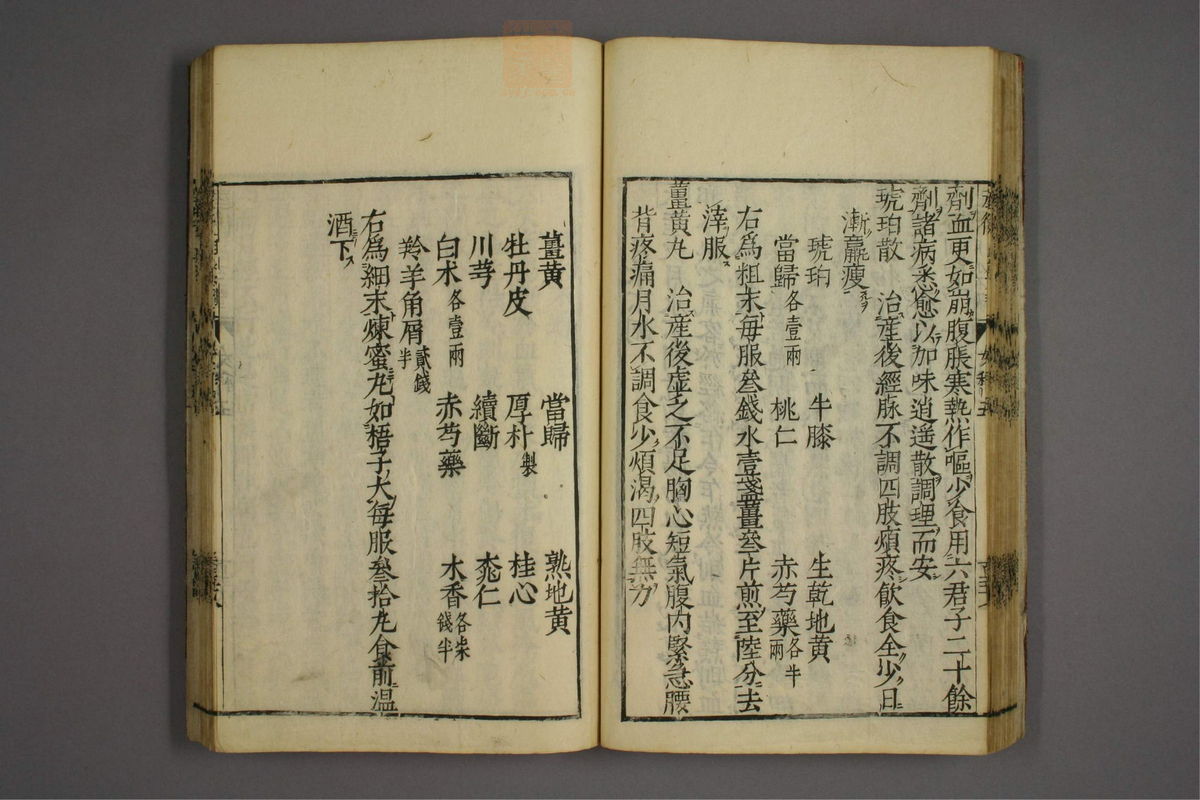 劑血更如崩腹脹寒熱作嘔少食用六君子二十餘
劑諸病悉愈以加味逍遥散調理而安
琥珀散　治産後經脉不調四肢煩疼飲食全少日
漸羸瘦
琥珀　牛膝　生乾地黄
當歸各壹兩　桃仁　赤芍藥各半兩
右爲粗末每服叄錢水壹盞薑叄片煎至陸分去
滓服
薑黄丸　治産後虚乏不足胸心短氣腹内緊急腰
背疼痛月水不調食少煩渴四肢無力
薑黄　當歸　熟地黄
牡丹皮　厚朴製　桂心
川芎　續斷　桃仁
白朮各壹兩　赤芍藥　木香各柒錢半
羚羊角屑貳錢半
右爲細末煉蜜丸如梧子大每服叄拾丸食前温
酒下